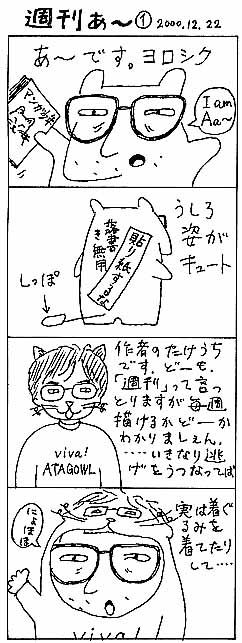 週刊あ～① 2000.12.22
あ～です。ヨロシク
マンガの本
I am
Aa～
うしろ
姿が
キュート
落書
き無用
貼り紙するな
しっぽ
作者のたけうち
です。どーも。
「週刊」って言っ
とりますが毎週
描けるかどーか
わかりましぇん。
……いきなり逃
げをうつなってば
viva!
ATAGOWL
にょほ
ほほ
実は着ぐ
るみを
着てたり
して……
viva!